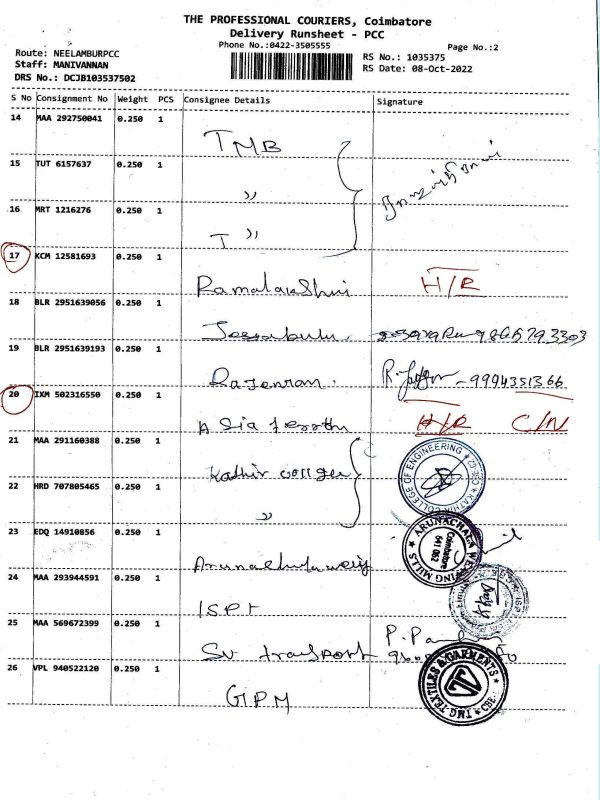 THE PROFESSIONAL COURIERS, Coimbatore
Delivery Runsheet - PCC
Phone No.:0422-3505555
Page No.:2
Route: NEELAMBURPCC
RS No.: 1035375
Staff: MANIVANNAN
RS Date: 08-Oct-2022
DRS No.: DCJB103537502
S No Consignment No Weight PCS Consignee Details Signature
14 MAA 292750041 0.250 1
TMB
15 TUT 6157637 0.250 1
"
16 MRT 1216276 0.250 1
T "
17 KCM 12581693 0.250 1
H/R
18 BLR 2951639056 0.250 1
19 BLR 2951639193 0.250 1
9994351366
20 IXM 502316550 0.250 1
Asia
H/R C/N
21 MAA 291160388 0.250 1
Kathir
COLLEGE OF ENGINEERING
22 HRD 707805465 0.250 1
"
23 EDQ 14910856 0.250 1
MILLS
Coimbatore
641 062
24 MAA 293944591 0.250 1
25 MAA 569672399 0.250 1
transport
26 VPL 940522120 0.250 1
GPM
TEXTILES & GARMENTS